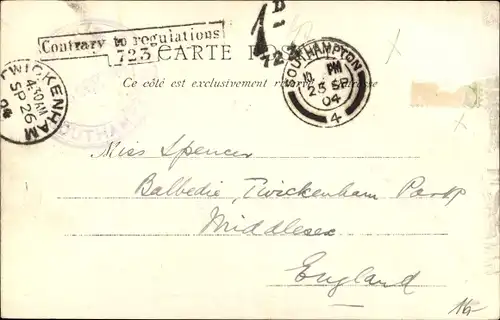 Contrary to regulations
723
1D
723
CARTE POS
Ce côté est exclusivement réservé à l'adresse
TWICKENHAM
4.30 AM
SP 26
04
SOUTHAMPTON
PM
25 SP
04
4
SOUTHAM
Miss Spencer
Balbedie, Twickenham Park
Middlesex
England